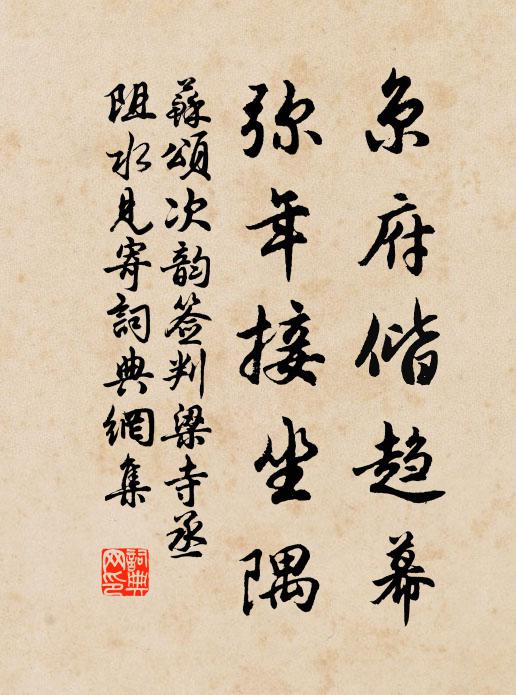 京府偕趋幕
弥年接坐隅
蘇頌次韵签判梁寺丞
阻水見寄詞典網集
詞典网印